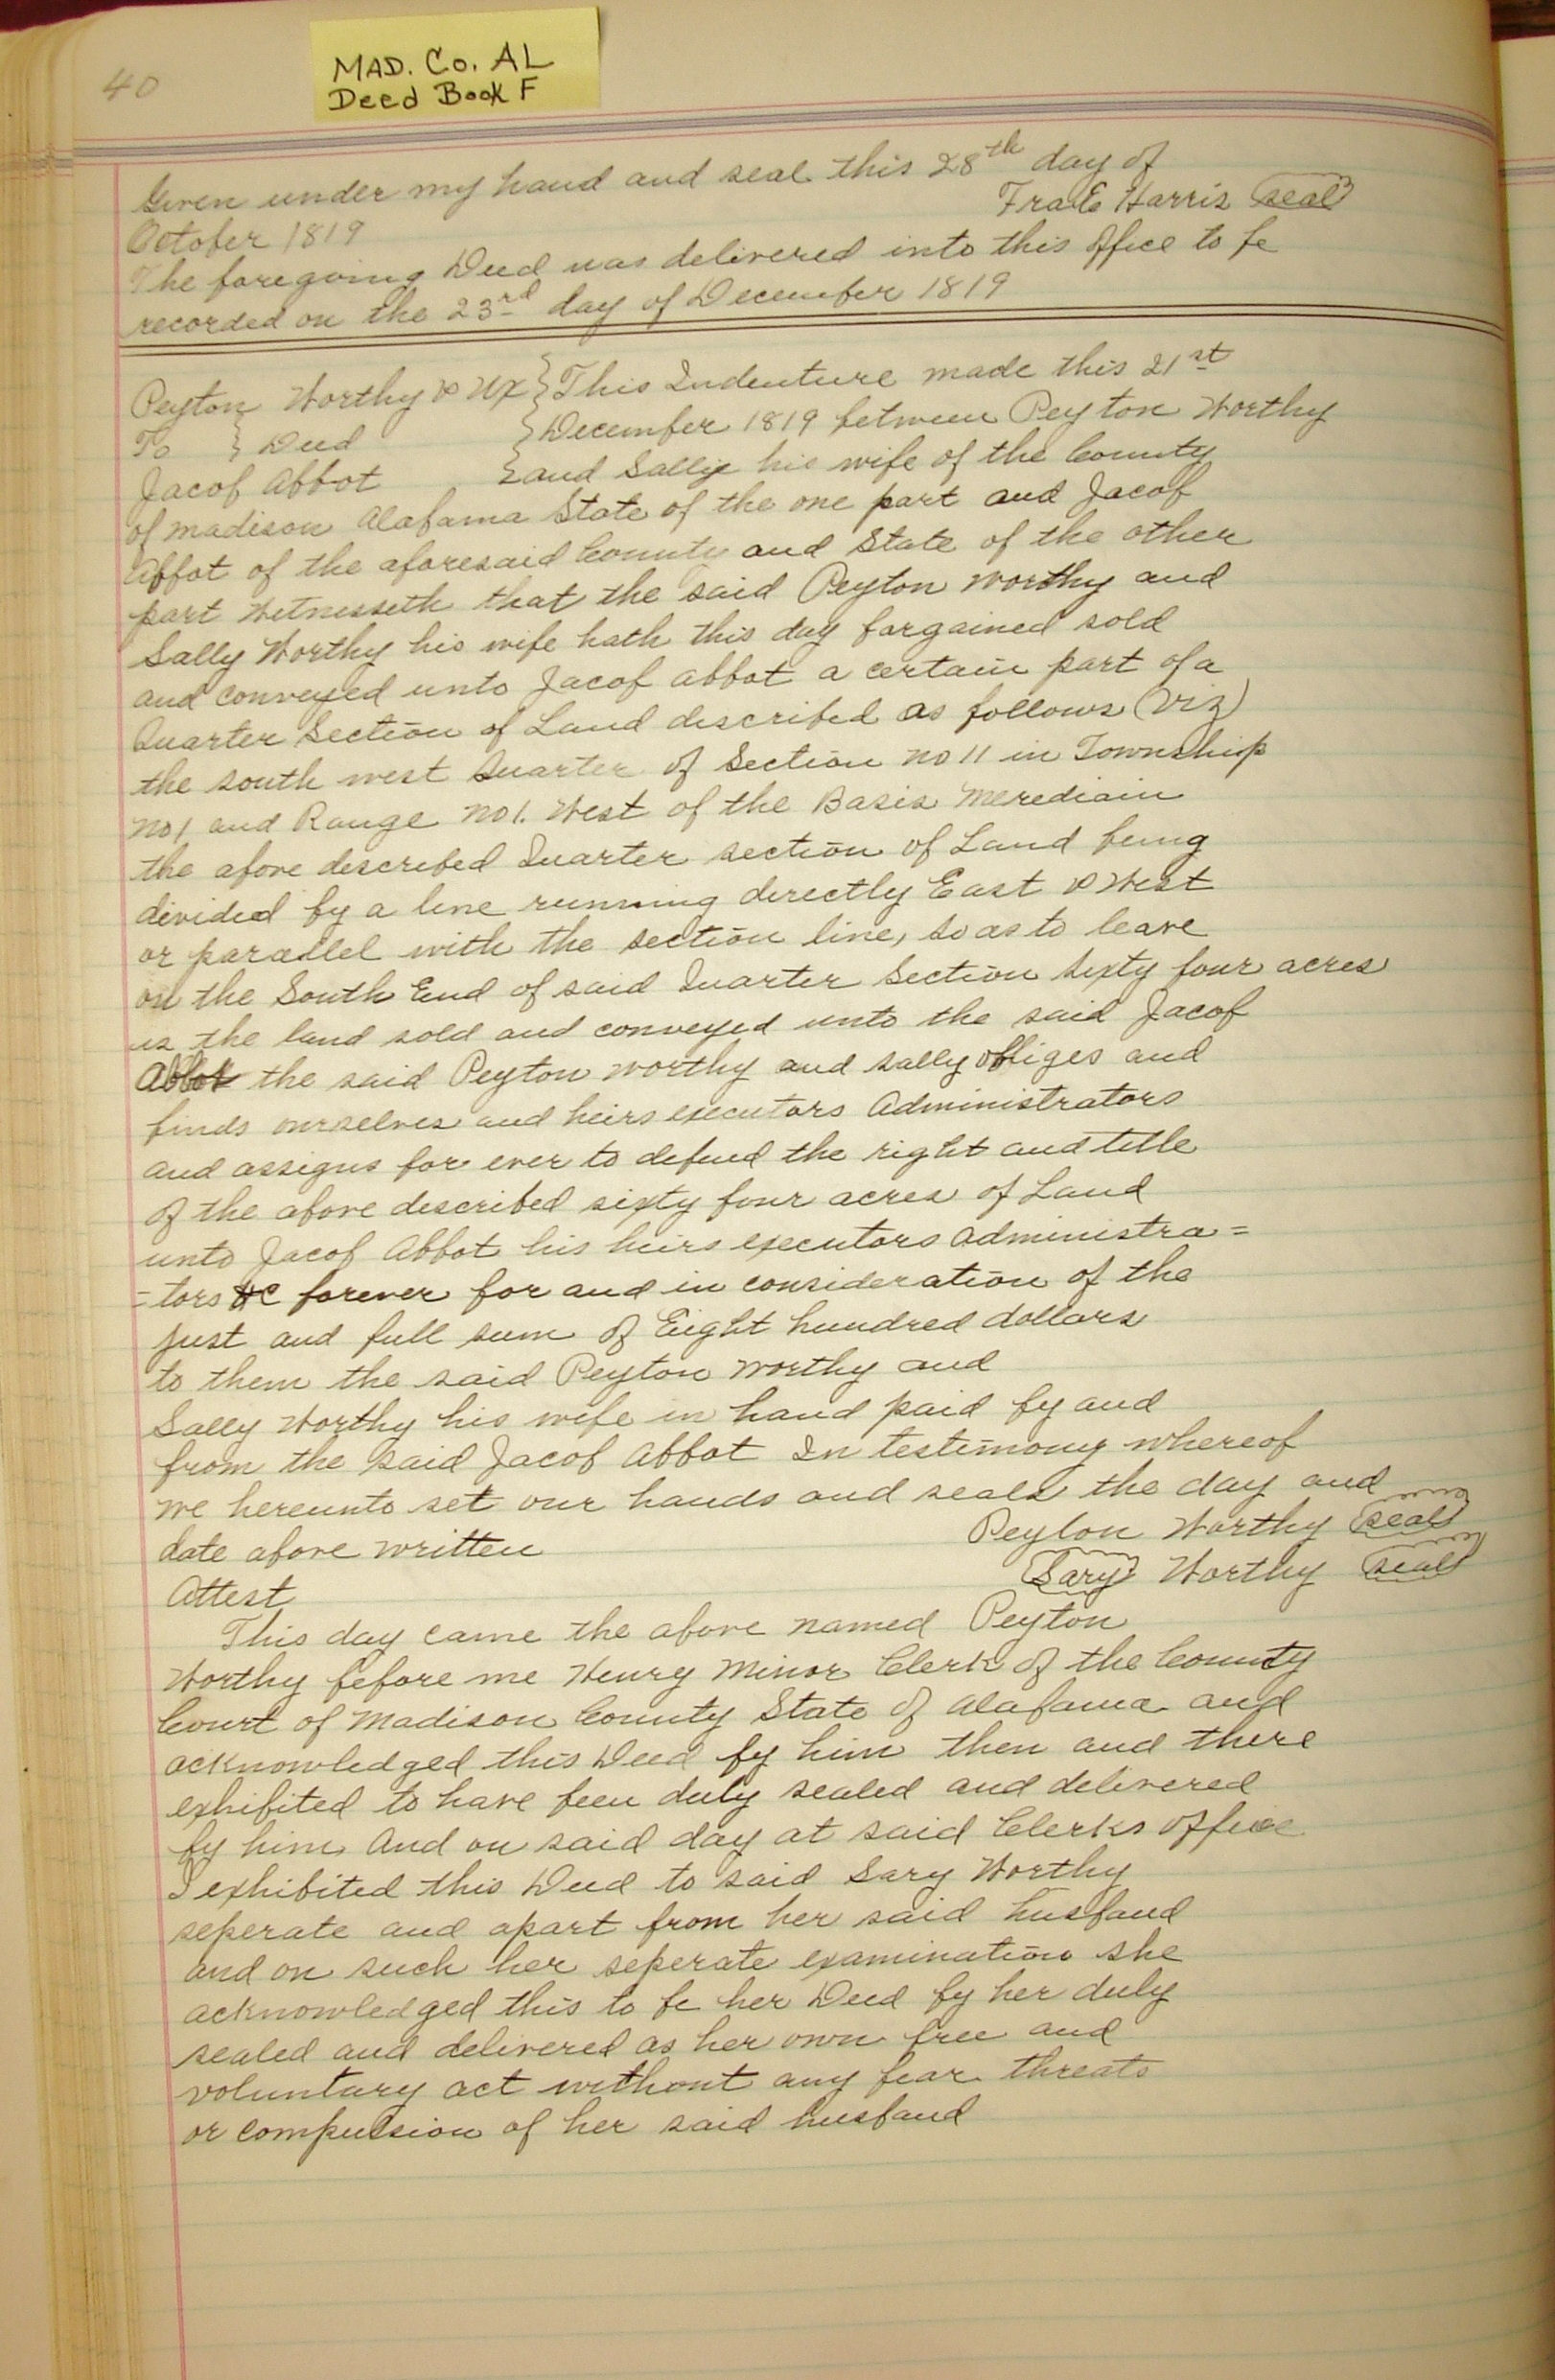 40
MAD. Co. AL
Deed Book F
Given under my hand and seal this 28th day of
October 1819
Fra E Harris seal
The foregoing Deed was delivered into this office to be
recorded on the 23rd day of December 1819
Peyton Worthy & Ux } This Indenture made this 21st
To } Deed } December 1819 between Peyton Worthy
Jacob Abbot } and Sally his wife of the County
of Madison Alabama State of the one part and Jacob
Abbot of the aforesaid County and State of the other
part Witnesseth that the said Peyton Worthy and
Sally Worthy his wife hath this day bargained sold
and conveyed unto Jacob Abbot a certain part of a
Quarter Section of Land described as follows (Viz)
the south west Quarter of Section no 11 in Township
no 1 and Range no 1. West of the Basis Merediain
the above described Quarter section of Land being
divided by a line running directly East & West
or parallel with the section line, so as to leave
on the South End of said Quarter Section Sixty four acres
is the land sold and conveyed unto the said Jacob
Abbot the said Peyton Worthy and Sally obliges and
binds ourselves and heirs executors Administrators
and assigns for ever to defend the right and title
of the above described sixty four acres of Land
unto Jacob Abbot his heirs executors administra=
=tors &C forever for and in consideration of the
just and full sum of Eight hundred dollars
to them the said Peyton Worthy and
Sally Worthy his wife in hand paid by and
from the said Jacob Abbot In testimony whereof
we hereunto set our hands and seals the day and
date above written
Peyton Worthy seal
Sary Worthy seal
Attest
This day came the above named Peyton
Worthy before me Henry Minor Clerk of the County
Court of Madison County State of Alabama and
acknowledged this Deed by him then and there
exhibited to have been duly sealed and delivered
by him And on said day at said Clerks office
I exhibited this Deed to said Sary Worthy
seperate and apart from her said husband
and on such her seperate examination she
acknowledged this to be her Deed by her duly
sealed and delivered as her own free and
voluntary act without any fear threats
or compulsion of her said husband